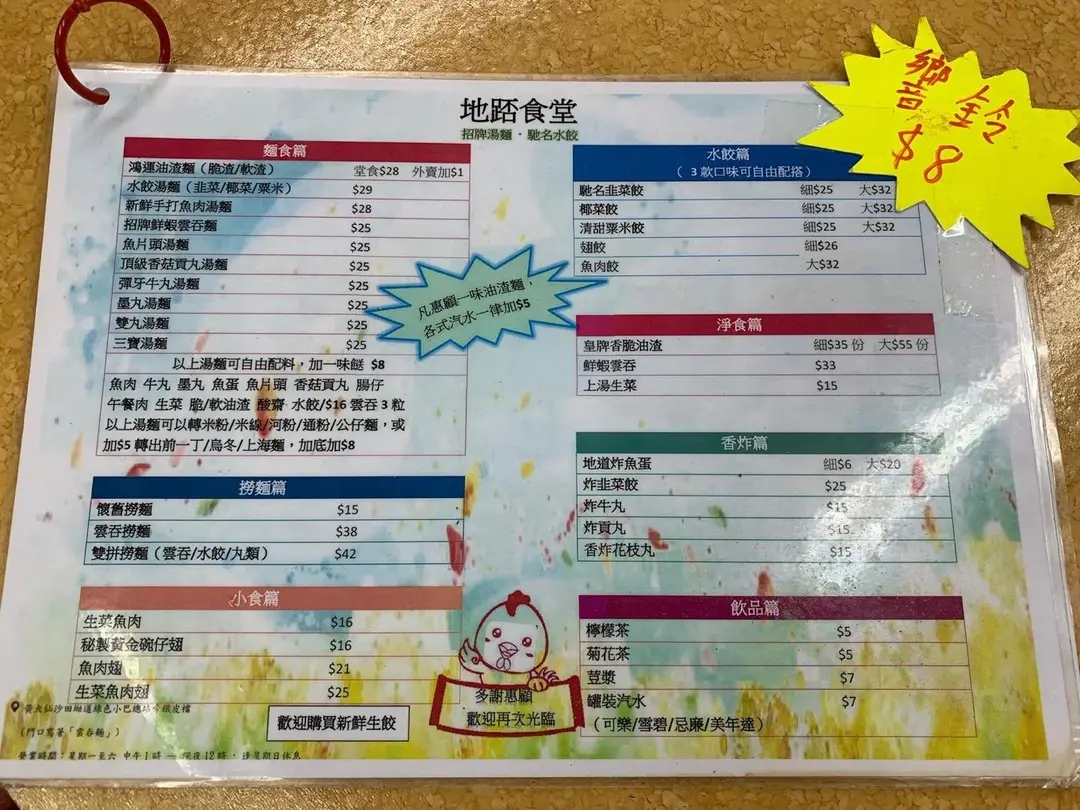 地踎食堂
招牌湯麵·馳名水餃
響鈴
$8
麵食篇
鴻運油渣麵（脆渣/軟渣） 堂食$28 外賣加$1
水餃湯麵（韭菜/椰菜/粟米） $29
新鮮手打魚肉湯麵 $28
招牌鮮蝦雲吞麵 $25
魚片頭湯麵 $25
頂級香菇貢丸湯麵 $25
彈牙牛丸湯麵 $25
墨丸湯麵 $25
雙丸湯麵 $25
三寶湯麵 $25
以上湯麵可自由配料，加一味餸 $8
魚肉 牛丸 墨丸 魚蛋 魚片頭 香菇貢丸 腸仔
午餐肉 生菜 脆/軟油渣 酸齋 水餃/$16 雲吞3粒
以上湯麵可以轉米粉/米線/河粉/通粉/公仔麵，或
加$5 轉出前一丁/烏冬/上海麵，加底加$8
凡惠顧一味油渣麵，
各式汽水一律加$5
撈麵篇
懷舊撈麵 $15
雲吞撈麵 $38
雙拼撈麵（雲吞/水餃/丸類） $42
小食篇
生菜魚肉 $16
秘製黃金碗仔翅 $16
魚肉翅 $21
生菜魚肉翅 $25
水餃篇
（ 3 款口味可自由配搭）
馳名韭菜餃 細$25 大$32
椰菜餃 細$25 大$32
清甜粟米餃 細$25 大$32
翅餃 細$26
魚肉餃 大$32
淨食篇
皇牌香脆油渣 細$35 份 大$55 份
鮮蝦雲吞 $33
上湯生菜 $15
香炸篇
地道炸魚蛋 細$6 大$20
炸韭菜餃 $25
炸牛丸 $15
炸貢丸 $15
香炸花枝丸 $15
飲品篇
檸檬茶 $5
菊花茶 $5
荳漿 $7
罐裝汽水 $7
（可樂/雪碧/忌廉/美年達）
多謝惠顧
歡迎再次光臨
歡迎購買新鮮生餃
黃大仙沙田坳道綠色小巴總站旁鐵皮檔
（門口寫著「雲吞麵」）
營業時間：星期一至六 中午1時 — 深夜12時·逢星期日休息